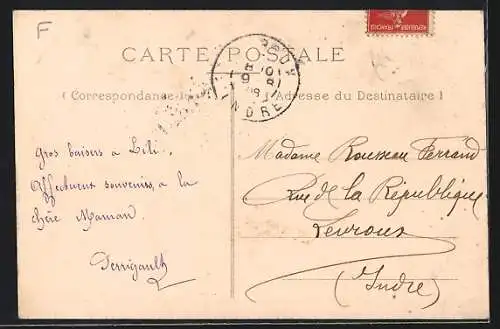 F
CARTE POSTALE
INDRE
( Correspondance
Adresse du Destinataire )
Gros baisers à Lili.
Affectueux souvenirs, à la
chère Maman.
Perrigault
Madame Rousseau Ferrand
Rue de la République
Levroux
(Indre)